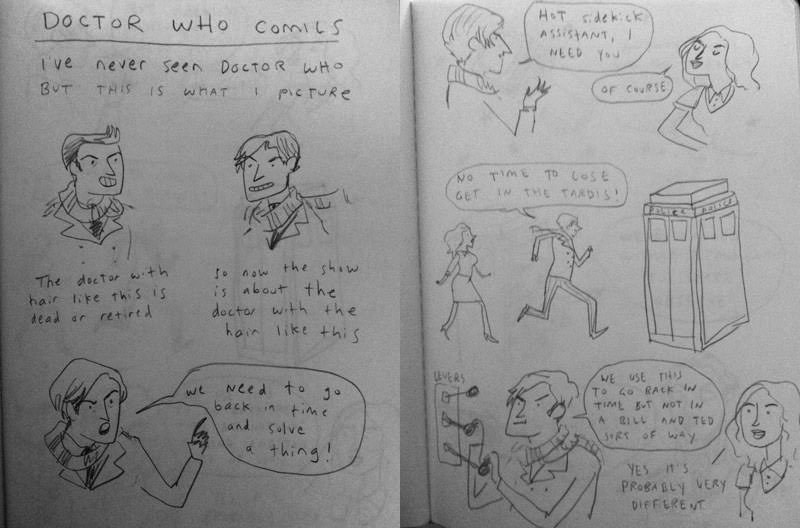 DOCTOR WHO COMICS
I've never seen DOCTOR WHO
BUT THIS IS WHAT I PICTURE
The doctor with
hair like this is
dead or retired
So now the show
is about the
doctor with the
hair like this
we need to go
back in time
and solve
a thing!
HOT sidekick
ASSISTANT, I
NEED YOU
OF COURSE
NO TIME TO LOSE
GET IN THE TARDIS!
POLICE POLICE
LEVERS
WE USE THIS
TO GO BACK IN
TIME BUT NOT IN
A BILL AND TED
SORT OF WAY
YES IT'S
PROBABLY VERY
DIFFERENT